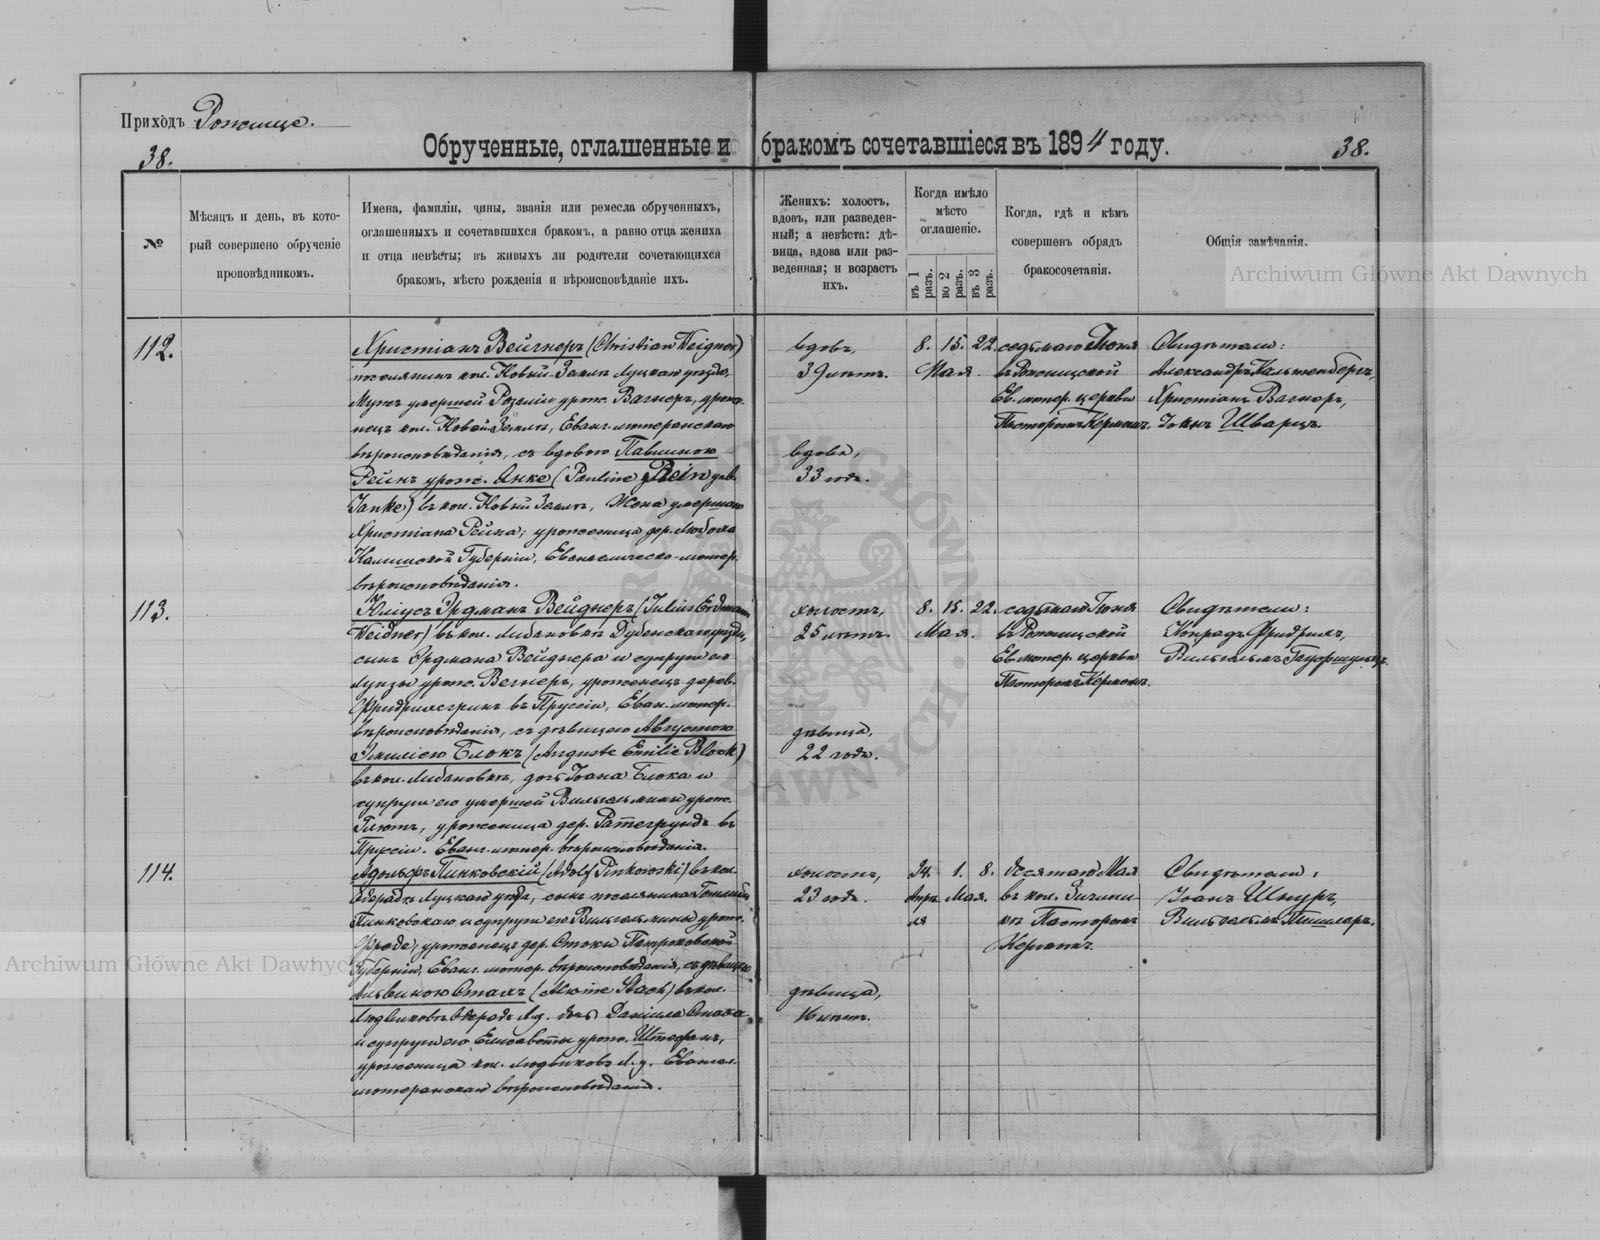 Приходъ Рожище.
38.
Обрученные, оглашенные и бракомъ сочетавшіеся въ 1894 году.
38.
№
Мѣсяцъ и день, въ кото-
рый совершено обрученіе
проповѣдникомъ.
Имена, фамиліи, чины, званія или ремесла обрученныхъ,
оглашенныхъ и сочетавшихся бракомъ, а равно отца жениха
и отца невѣсты; въ живыхъ ли родители сочетающихся
бракомъ, мѣсто рожденія и вѣроисповѣданіе ихъ.
Женихъ: холостъ,
вдовъ, или разведен-
ный; а невѣста: дѣ-
вица, вдова или раз-
веденная; и возрастъ
ихъ.
Когда имѣло
мѣсто
оглашеніе.
въ 1 разъ.
во 2 разъ.
въ 3 разъ.
Когда, гдѣ и кѣмъ
совершенъ обрядъ
бракосочетанія.
Общія замѣчанія.
Archiwum Główne Akt Dawnych
112.
Христіанъ Вейгнеръ (Christian Weigner)
поселянинъ кол. Новый Земли Луцкаго уѣзда,
Мужъ умершей Розаліи урож. Вагнеръ, урож.
нецъ кол. Новой Земли, Еванг. лютеранскаго
вѣроисповѣданія, съ вдовою Павлиною
Рейнъ урож. Янке (Pauline Rein geb.
Janke) въ кол. Новый Земли, Жена умершаго
Христіана Рейна; уроженица дер.
Калишской Губерніи, Евангелическо-лютер.
вѣроисповѣданія.
вдовъ,
39 лѣтъ.
вдова,
33 года.
8. 15. 22.
Мая.
седьмаго Іюня
въ Рожищской
Ев. лютер. церкви
Пасторомъ Керномъ.
Свидѣтели:
Александръ Кальтенбергъ,
Христіанъ Вагнеръ,
Іоанъ Шварцъ.
113.
Юліусъ Эрдманъ Вейднеръ (Julius Erdmann
Weidner) въ кол. Либановкѣ Дубенскаго уѣзда,
сынъ Эрдмана Вейднера и супруги его
Луизы урож. Вегнеръ, уроженецъ дерев.
въ Пруссіи, Еван. лютер.
вѣроисповѣданія, съ дѣвицею Августою
Эмиліею Блокъ (Auguste Emilie Block)
въ кол. Либановкѣ, дочь Іоана Блока и
супруги его умершей Вильгельмины урож.
уроженица дер. въ
Пруссіи. Еванг. лютер. вѣроисповѣданія.
холостъ,
25 лѣтъ.
дѣвица,
22 года.
8. 15. 22.
Мая.
седьмаго Іюня
въ Рожищской
Ев. лютер. церкви
Пасторомъ Керномъ.
Свидѣтели:
Конрадъ Фридрихъ,
Вильгельмъ
114.
Адольфъ Пинковскій (Adolf Pinkowski) въ кол.
Луцкаго уѣзда, сынъ поселянина Готлиба
Пинковскаго и супруги его Вильгельмины урож.
уроженецъ дер. Стоки Петроковской
Губерніи, Еванг. лютер. вѣроисповѣданія, съ дѣвицею
Альвиною Стахъ (Alwine Stach) въ кол.
дочь Даніила Стаха
и супруги его Елисаветы урож. Штефанъ,
уроженица кол. Евангел.
лютеранскаго вѣроисповѣданія.
холостъ,
23 года.
дѣвица,
16 лѣтъ.
24. 1. 8.
Апрѣ Мая.
ля
десятаго Мая
въ кол.
Пасторомъ
Керномъ.
Свидѣтели:
Іоанъ Шнуръ,
Вильгельмъ
Archiwum Główne Akt Dawnych